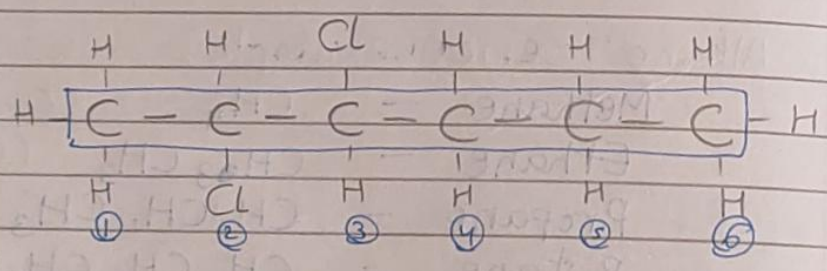 H H Cl H H H
H - C - C - C - C - C - C - H
H Cl H H H H
① ② ③ ④ ⑤ ⑥